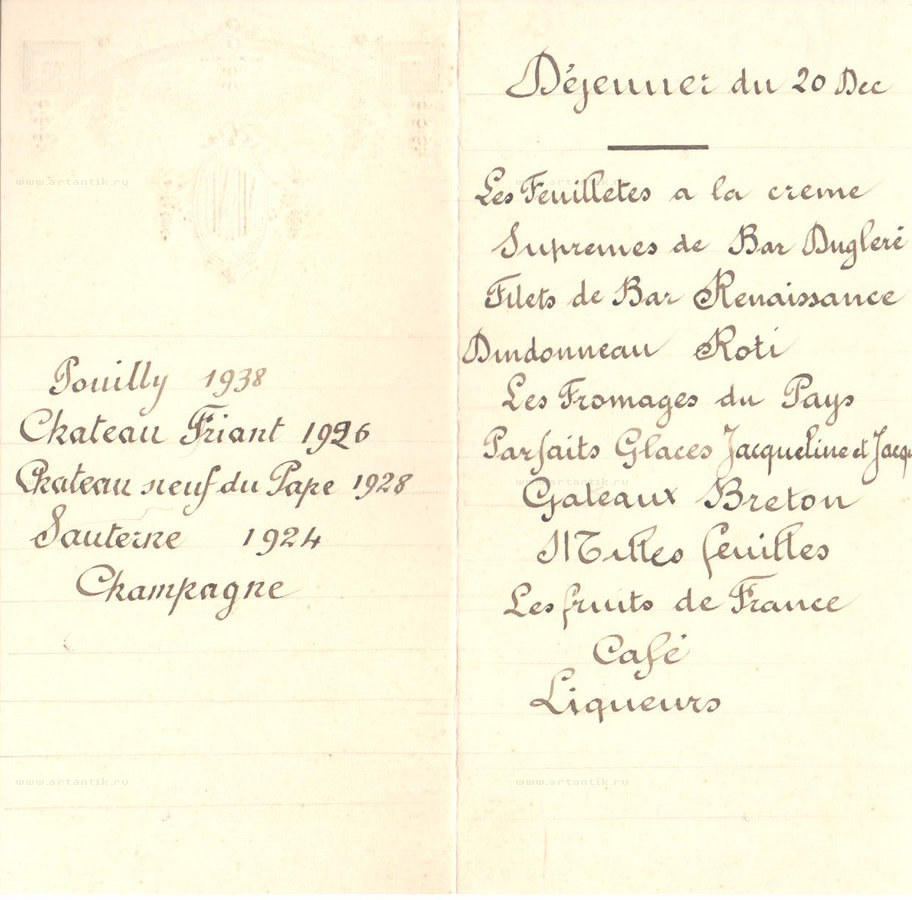 Pouilly 1938
Chateau Friant 1926
Chateau neuf du Pape 1928
Sauterne 1924
Champagne
Déjeuner du 20 Dec
Les Feuilletes a la creme
Supremes de Bar Dugleré
Filets de Bar Renaissance
Dindonneau Roti
Les Fromages du Pays
Parfaits Glaces Jacqueline et Jacq
Gateaux Breton
Milles feuilles
Les fruits de France
Café
Liqueurs
www.artantik.ru
www.artantik.ru
www.artantik.ru
www.artantik.ru
www.artantik.ru